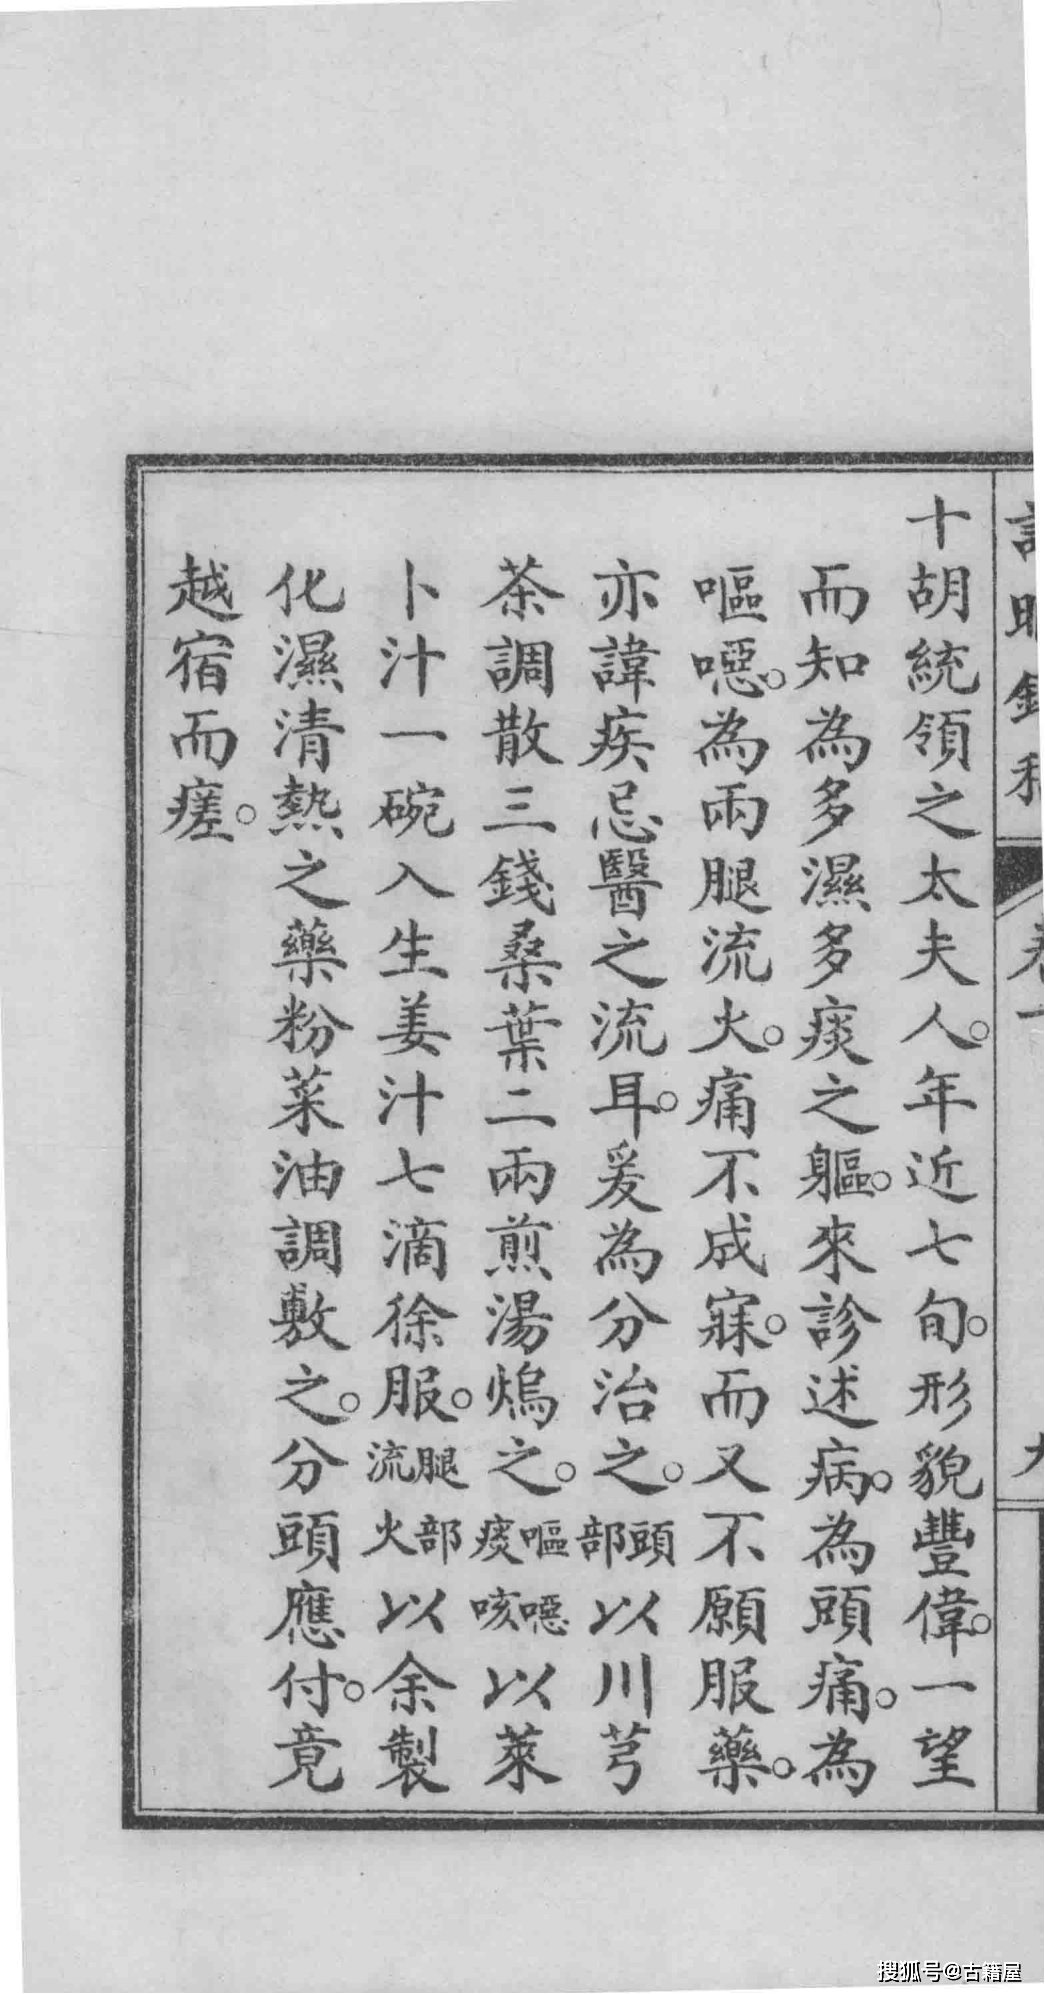 十胡統領之太夫人。年近七旬。形貌豐偉。一望
而知為多濕多痰之軀。來診述病。為頭痛。為
嘔噁。為兩腿流火。痛不成寐。而又不願服藥。
亦諱疾忌醫之流耳。爰為分治之。頭部以川芎
茶調散三錢桑葉二兩煎湯熓之。嘔噁痰咳以萊
卜汁一碗入生姜汁七滴徐服。腿部流火以余製
化濕清熱之藥粉菜油調敷之。分頭應付。竟
越宿而瘥。
搜狐号@古籍屋